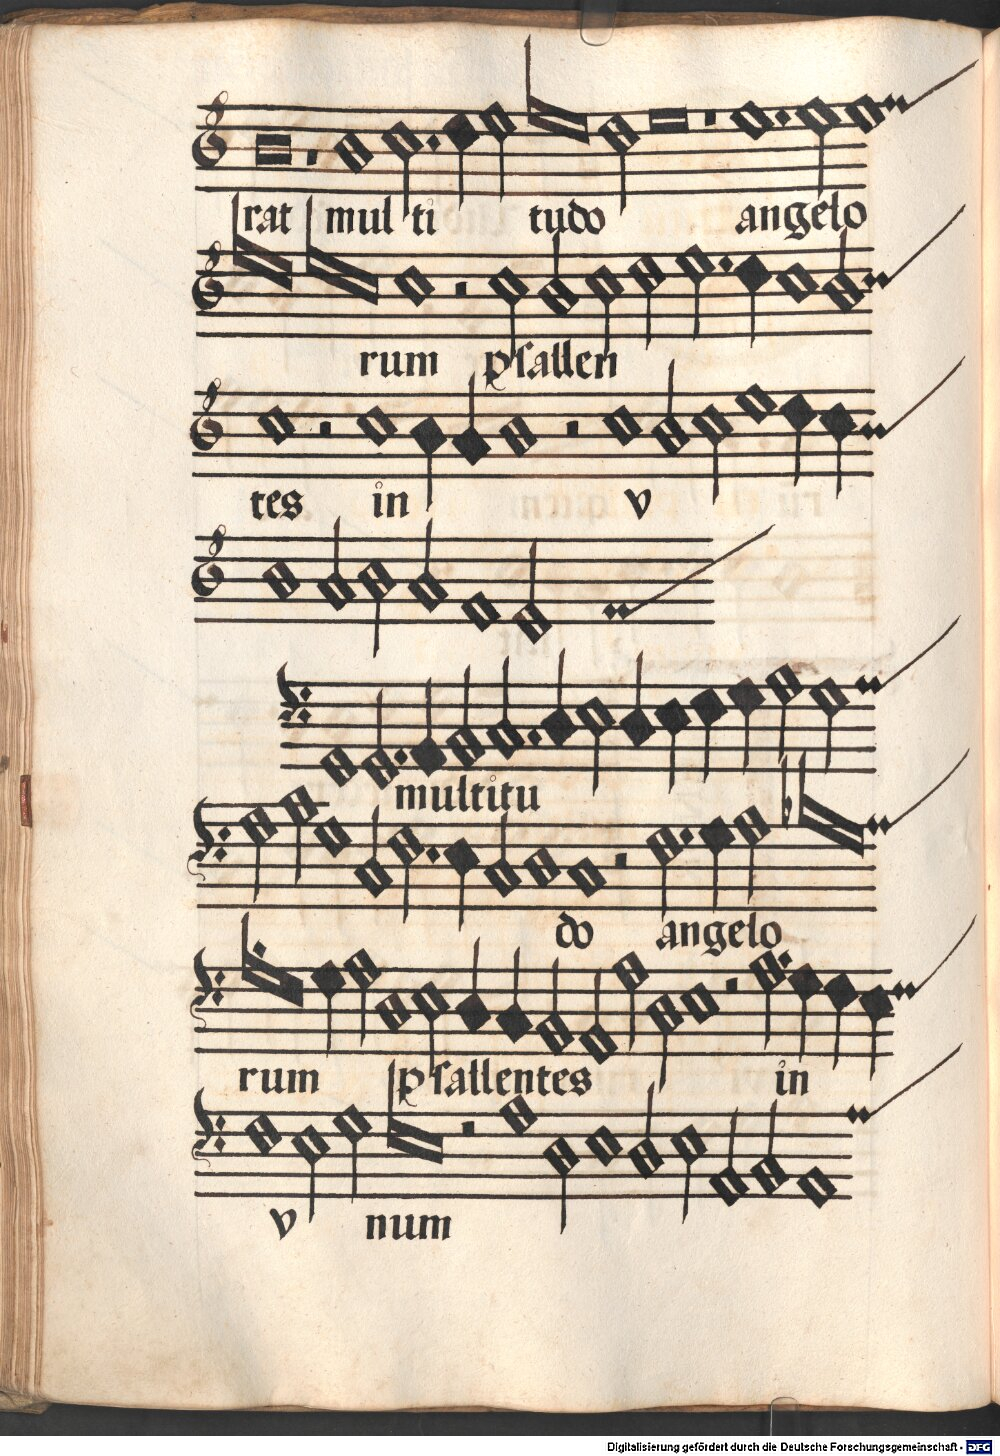 rat mul ti tudo angelo
rum psallen
tes in v
multitu
do angelo
rum psallentes in
v num
Digitalisierung gefördert durch die Deutsche Forschungsgemeinschaft - DFG